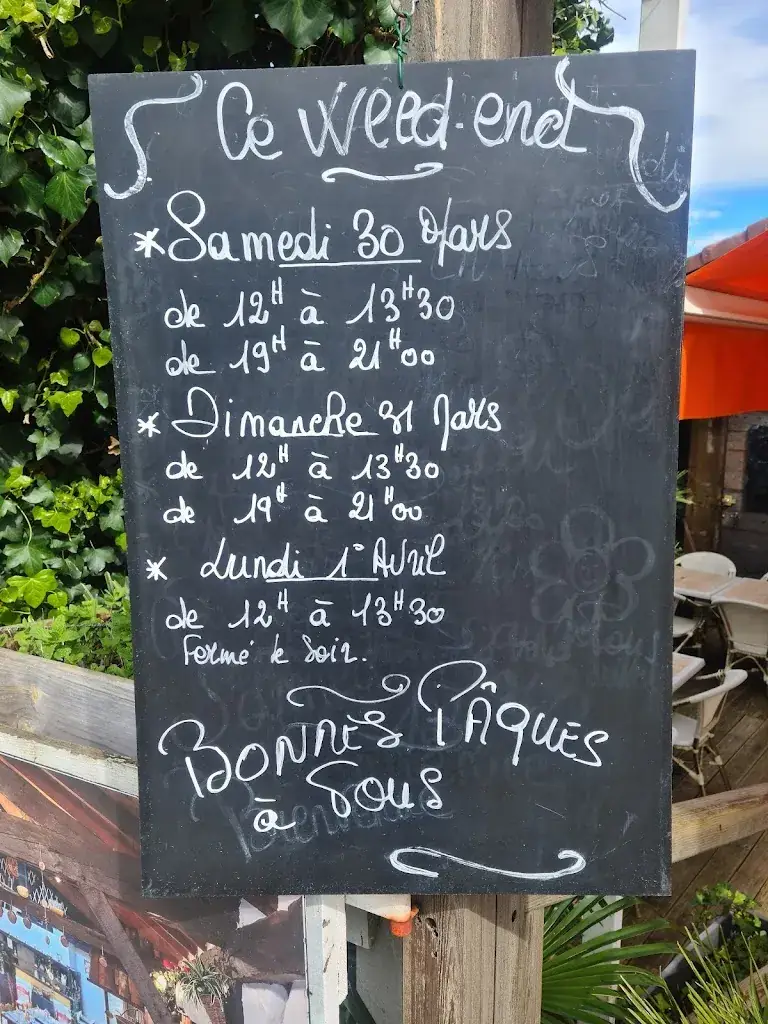 Ce weed-end
* Samedi 30 Mars
de 12H à 13H30
de 19H à 21H00
* Dimanche 31 Mars
de 12H à 13H30
de 19H à 21H00
* Lundi 1° Avril
de 12H à 13H30
Fermé le Soir.
BONNES PÂQUES
à Tous